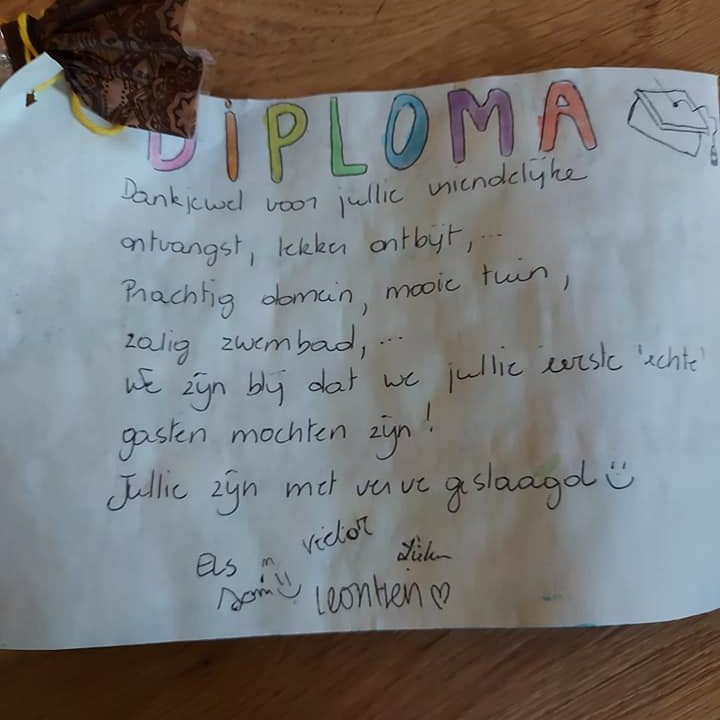 DiPLOMA
Dankjewel voor jullie vriendelijke
ontvangst, lekker ontbijt,...
Prachtig domein, mooie tuin,
zalig zwembad,...
We zijn blij dat we jullie eerste 'echte'
gasten mochten zijn!
Jullie zijn met verve geslaagd
Victor
Els
Leontien